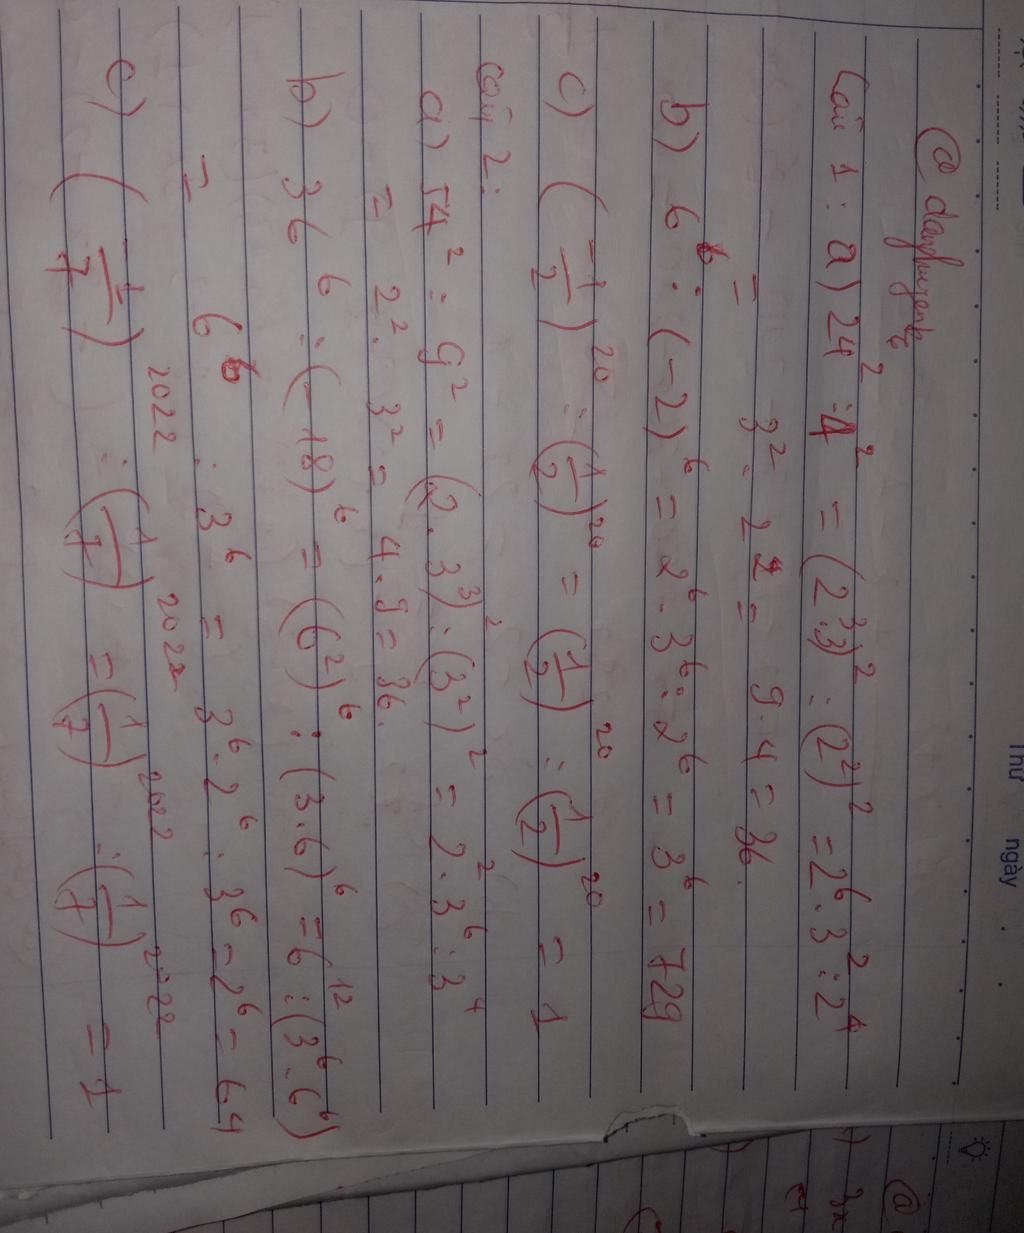 Thứ ngày
@ danghuyenk6
Câu 1: a) 24² : 4² = (2³.3)² : (2²)² = 2⁶.3² : 2⁴
= 3².2² = 9.4 = 36.
b) 6⁶ : (-2)⁶ = 2⁶.3⁶ : 2⁶ = 3⁶ = 729
c) (-1/2)²⁰ : (1/2)²⁰ = (1/2)²⁰ : (1/2)²⁰ = 1
Câu 2:
a) 54² : 9² = (2.3³)² : (3²)² = 2².3⁶ : 3⁴
= 2².3² = 4.9 = 36.
b) 36⁶ : (-18)⁶ = (6²)⁶ : (3.6)⁶ = 6¹² : (3⁶.6⁶)
= 6⁶ : 3⁶ = 3⁶.2⁶ : 3⁶ = 2⁶ = 64
c) (-1/7)²⁰²² : (1/7)²⁰²² = (1/7)²⁰²² : (1/7)²⁰²² = 1